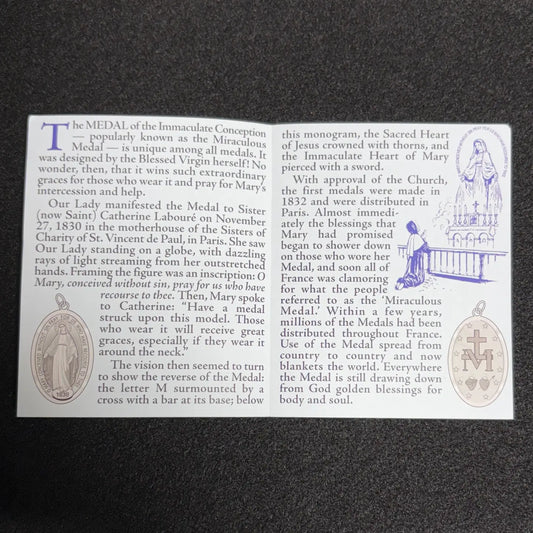 The MEDAL of the Immaculate Conception
— popularly known as the Miraculous
Medal — is unique among all medals. It
was designed by the Blessed Virgin herself! No
wonder, then, that it wins such extraordinary
graces for those who wear it and pray for Mary's
intercession and help.
Our Lady manifested the Medal to Sister
(now Saint) Catherine Labouré on November
27, 1830 in the motherhouse of the Sisters of
Charity of St. Vincent de Paul, in Paris. She saw
Our Lady standing on a globe, with dazzling
rays of light streaming from her outstretched
hands. Framing the figure was an inscription: O
Mary, conceived without sin, pray for us who have
recourse to thee. Then, Mary spoke
to Catherine: "Have a medal
struck upon this model. Those
who wear it will receive great
graces, especially if they wear it
around the neck."
The vision then seemed to turn
to show the reverse of the Medal:
the letter M surmounted by a
cross with a bar at its base; below
1830
this monogram, the Sacred Heart
of Jesus crowned with thorns, and
the Immaculate Heart of Mary
pierced with a sword.
With approval of the Church,
the first medals were made in
1832 and were distributed in
Paris. Almost immedi-
ately the blessings that
Mary had promised
began to shower down
on those who wore her
Medal, and soon all of
France was clamoring
for what the people
referred to as the 'Miraculous
Medal.' Within a few years,
millions of the Medals had been
distributed throughout France.
Use of the Medal spread from
country to country and now
blankets the world. Everywhere
the Medal is still drawing down
from God golden blessings for
body and soul.
M